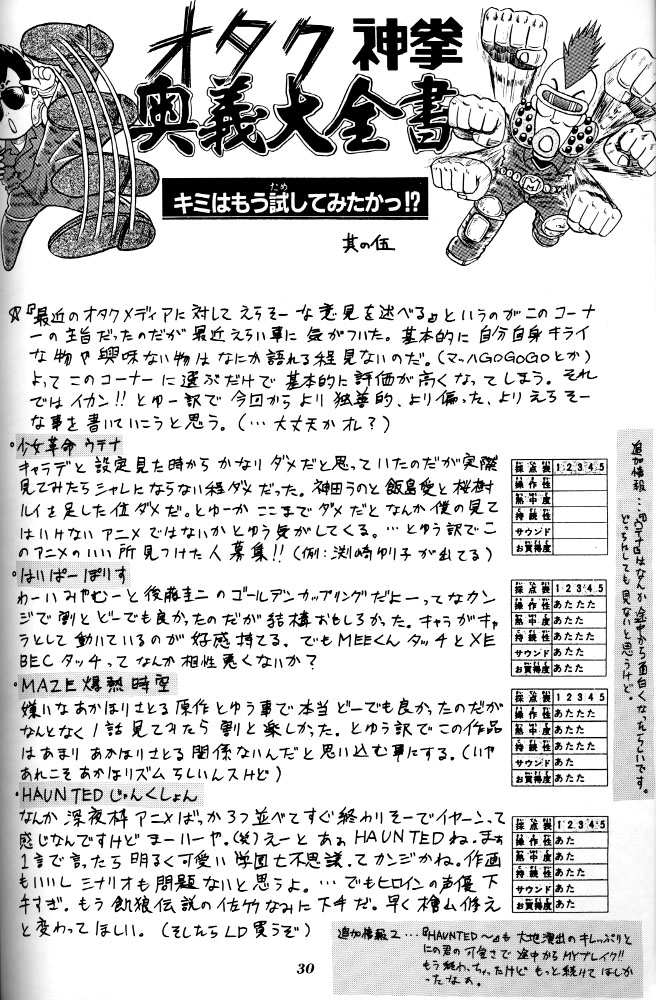 オタク神拳
奥義大全書
キミはもう試してみたかっ!?
其の伍
☆『最近のオタクメディアに対してえらそーな意見を述べる』というのがこのコーナ
ーの主旨だったのだが最近えらい事に気がついた。基本的に自分自身キライ
な物や興味ない物はなにか語れる程見ないのだ。(マッハGOGOGOとか)
よってこのコーナーに選ぶだけで基本的に評価が高くなってしまう。それ
ではイカン!!とゆー訳で今回からより独善的、より偏った、よりえらそー
な事を書いていこうと思う。(…大丈夫かオレ?)
・少女革命ウテナ
キャラデと設定見た時からかなりダメだと思っていたのだが実際
見てみたらシャレにならない程ダメだった。神田うのと飯島愛と桜樹
ルイを足した位ダメだ。とゆーかここまでダメだとなんか僕の見て
はいけないアニメではないかとゆう気がしてくる。…とゆう訳でこ
のアニメのいい所見つけた人募集!!(例:渕崎ゆり子が出てる)
採点表 1 2 3 4 5
操作性
熱中度
持続性
サウンド
お買得度
・はいぱーぽりす
わーいみやむーと後藤圭二のゴールデンカップリングだよーってなカン
ジで割とどーでも良かったのだが結構おもしろかった。キャラがキャ
ラとして動いているのが好感持てる。でもMEEくんタッチとXE
BECタッチってなんか相性悪くないか?
採点表 1 2 3 4 5
操作性 あたたた
熱中度 あたたた
持続性 あたたたた
サウンド あたた
お買得度 あたた
・MAZE爆熱時空
嫌いなあかほりさとる原作とゆう事で本当どーでも良かったのだが
なんとなく1話見てみたら割と楽しかった。とゆう訳でこの作品
はあまりあかほりさとる関係ないんだと思い込む事にする。(いや
あれこそあかほリズムらしいんスけど)
採点表 1 2 3 4 5
操作性 あたたた
熱中度 あたたた
持続性 あたたたた
サウンド あた
お買得度 あたた
・HAUNTEDじゃんくしょん
なんか深夜枠アニメばっか3つ並べてすぐ終わりそーでイヤーンって
感じなんですけどまーいーや。(笑)えーとあぁHAUNTEDね。まぁ
1言で言ったら明るく可愛い学園七不思議ってカンジかね。作画
もいいしシナリオも問題ないと思うよ。…でもヒロインの声優下
手すぎ。もう餓狼伝説の佐竹なみに下手だ。早く檜山修之
と変わってほしい。(そしたらLD買うぞ)
採点表 1 2 3 4 5
操作性 あた
熱中度 あた
持続性 あたた
サウンド あた
お買得度 あた
追加情報…『ウテナ』はなんか途中から面白くなったらしいです。
どっちにしても見ないと思うけど。
追加情報2…『HAUNTED〜』も大地演出のキレっぷりと
にの君の可愛さで途中からMYブレイク!!
もう終わっちゃったけどもっと続けてほしか
ったなぁ。
30